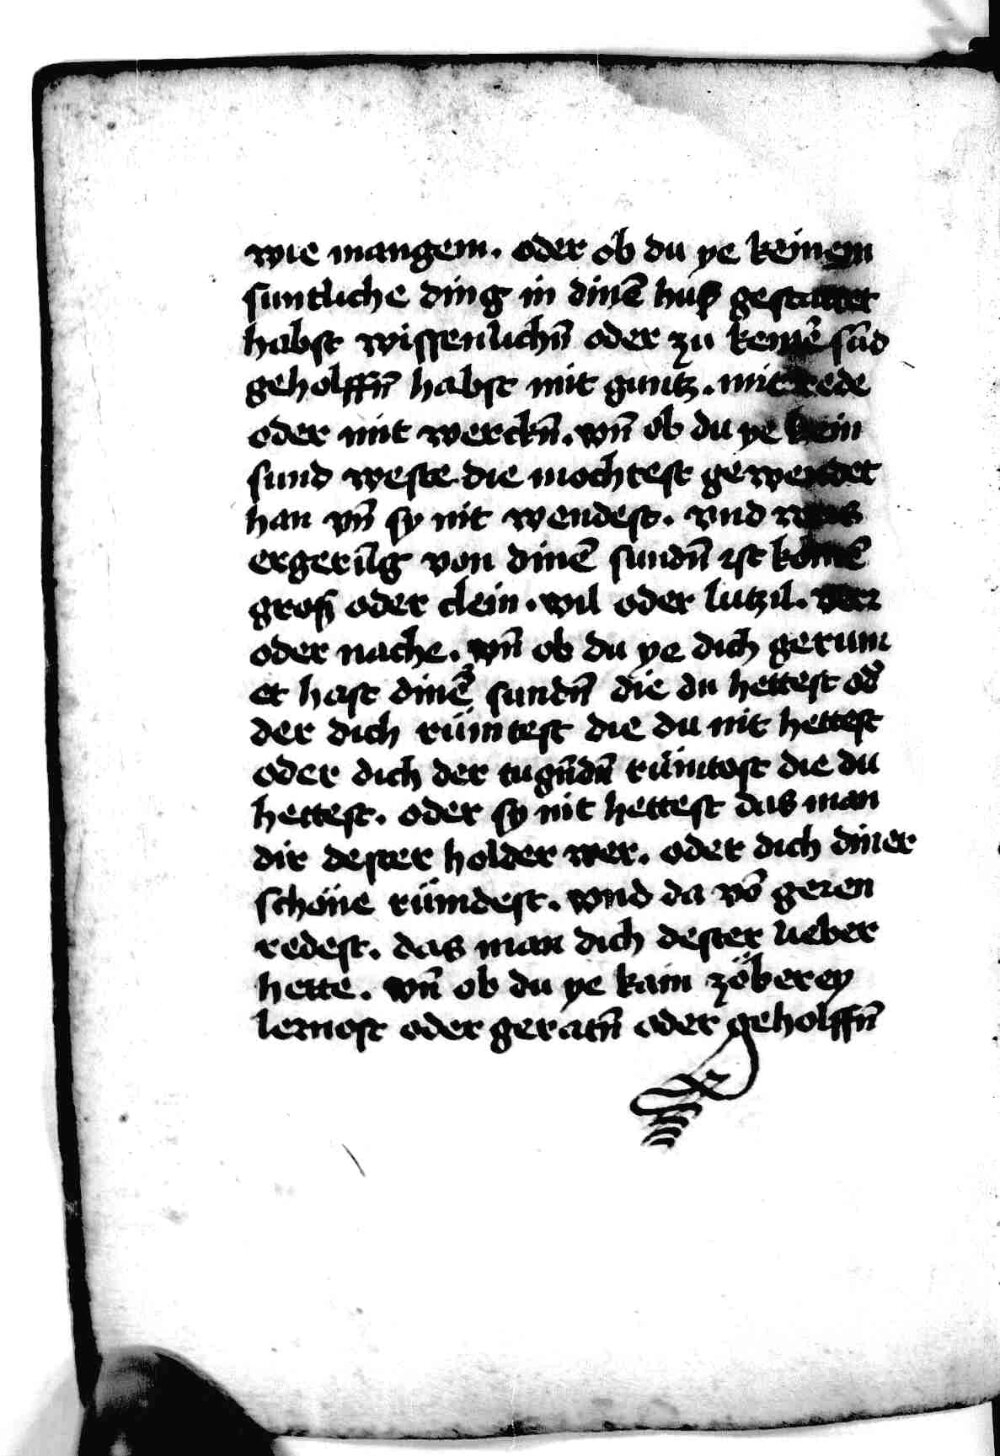 wie mangem. oder ob du ye keinem
suntliche ding in dinē hus gestattet
habst wissenlichn̄ oder zu kemē sūd
geholffn̄ habst mit guntz. mit rede
oder mit werckn̄. vn̄ ob du ye kein
sund weste die mochtest gewendet
han vn̄ sy nit wendest. vnd was
ergerūg von dinē sundn̄ ist komē
groß oder clein. vil oder lutzil.
oder nache. vn̄ ob du ye dich gerum
et hast dinē sundn̄ die du hettest od
der dich rümtest die du nit hettest
oder dich der tugn̄dn̄ rümtost die du
hettest. oder sy nit hettest das man
dir dester holder wer. oder dich diner
schöne rümdest. vnd da vō geren
redest. das man dich dester lieber
hette. vn̄ ob du ye kain zöberey
lernost oder geratn̄ oder geholffn̄